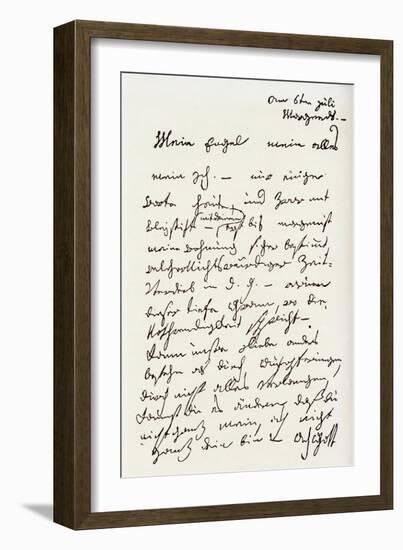 am 6ten Juli
Morgends. –
Mein Engel mein alles
mein Ich. – nur einige
Worte heute, und zwar mit
Bleystift – (mit deinem) erst bis morgen ist
meine Wohnung sicher bestimmt,
welcher nichtswürdiger Zeit-
verderb in d. g. – warum
dieser tiefe Gram, wo die
Nothwendigkeit spricht –
Kann unsre Liebe anders
bestehn als durch Aufopferungen,
durch nicht alles verlangen,
kannst du es ändern, daß du
nicht ganz mein, ich nicht
ganz dein bin – Ach Gott